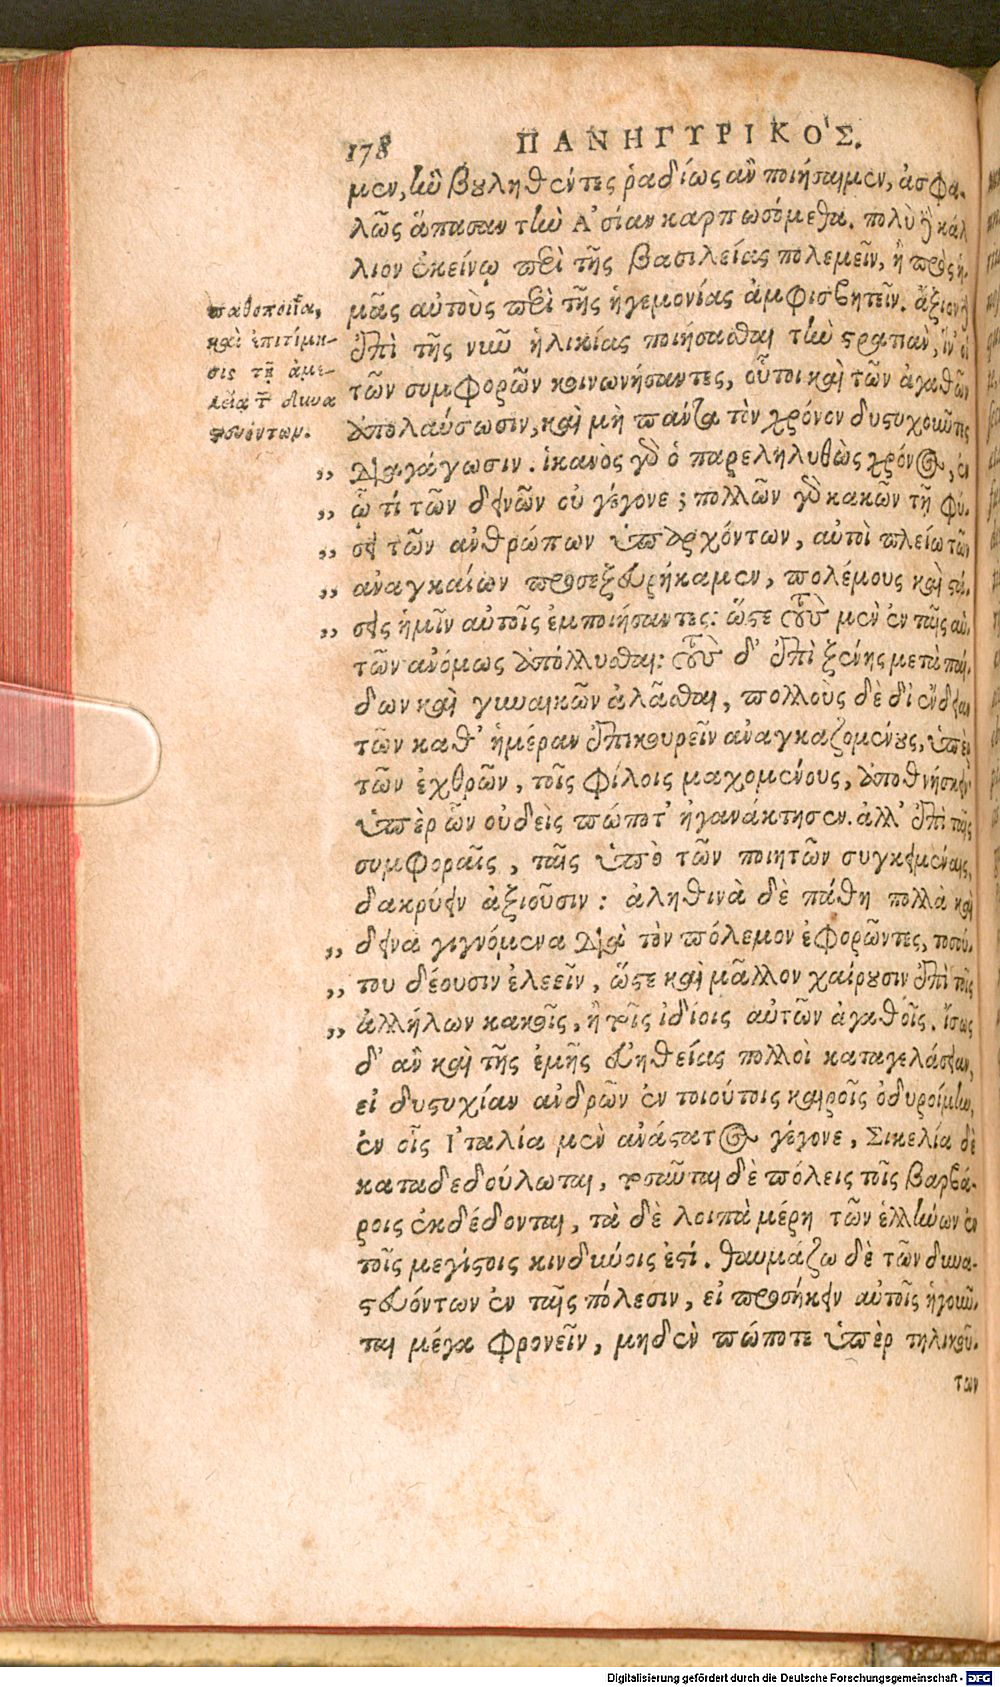 178 ΠΑΝΗΓΥΡΙΚΟΣ.
μεν, ἣν βουληθέντες ῥαδίως ἂν ποιήσαιμεν, ἀσφα-
λῶς ἅπασαν τὴν Ἀσίαν καρπωσόμεθα. πολὺ δὲ κάλ
λιον ἐκείνῳ περὶ τῆς βασιλείας πολεμεῖν, ἢ πρὸς ἡ-
μᾶς αὐτοὺς περὶ τῆς ἡγεμονίας ἀμφισβητεῖν. ἄξιον δ'
ἐπὶ τῆς νῦν ἡλικίας ποιήσασθαι τὴν στρατιὰν, ἵν' οἱ
τῶν συμφορῶν κοινωνήσαντες, οὗτοι καὶ τῶν ἀγαθῶν
ἀπολαύσωσιν, καὶ μὴ πάντα τὸν χρόνον δυστυχοῦντες
„ διαγάγωσιν. ἱκανὸς γὰρ ὁ παρεληλυθὼς χρόνος, ἐν
„ ᾧ τί τῶν δεινῶν οὐ γέγονε; πολλῶν γὰρ κακῶν τῇ φύ-
„ σει τῶν ἀνθρώπων ὑπαρχόντων, αὐτοὶ πλείω τῶν
„ ἀναγκαίων προσεξευρήκαμεν, πολέμους καὶ στά-
„ σεις ἡμῖν αὐτοῖς ἐμποιήσαντες: ὥστε τοὺς μὲν ἐν ταῖς αὑ-
τῶν ἀνόμως ἀπόλλυσθαι: τοὺς δ' ἐπὶ ξένης μετὰ παί-
δων καὶ γυναικῶν ἀλᾶσθαι, πολλοὺς δὲ δι' ἔνδειαν
τῶν καθ' ἡμέραν ἐπικουρεῖν ἀναγκαζομένους, ὑπὲρ
τῶν ἐχθρῶν, τοῖς φίλοις μαχομένους, ἀποθνήσκειν
ὑπὲρ ὧν οὐδεὶς πώποτ' ἠγανάκτησεν. ἀλλ' ἐπὶ ταῖς
συμφοραῖς, ταῖς ὑπὸ τῶν ποιητῶν συγκειμέναις,
δακρύειν ἀξιοῦσιν: ἀληθινὰ δὲ πάθη πολλὰ καὶ
„ δεινὰ γιγνόμενα διὰ τὸν πόλεμον ἐφορῶντες, τοσού-
„ του δέουσιν ἐλεεῖν, ὥστε καὶ μᾶλλον χαίρουσιν ἐπὶ τοῖς
„ ἀλλήλων κακοῖς, ἢ τοῖς ἰδίοις αὐτῶν ἀγαθοῖς. ἴσως
δ' ἂν καὶ τῆς ἐμῆς εὐηθείας πολλοὶ καταγελάσειαν,
εἰ δυστυχίαν ἀνδρῶν ἐν τοιούτοις καιροῖς ὀδυροίμην,
ἐν οἷς Ἰταλία μὲν ἀνάστατος γέγονε, Σικελία δὲ
καταδεδούλωται, τοσαῦται δὲ πόλεις τοῖς βαρβά-
ροις ἐκδέδονται, τὰ δὲ λοιπὰ μέρη τῶν ἑλλήνων ἐν
τοῖς μεγίστοις κινδύνοις ἐστί. θαυμάζω δὲ τῶν δυνα-
στευόντων ἐν ταῖς πόλεσιν, εἰ προσήκειν αὑτοῖς ἡγοῦν-
ται μέγα φρονεῖν, μηδὲν πώποτε ὑπὲρ τηλικού-
των
παθοποιΐα,
καὶ ἐπιτίμη-
σις τῆς ἀμε-
λείας τῶν δυνα
στευόντων.
Digitalisierung gefördert durch die Deutsche Forschungsgemeinschaft - DFG